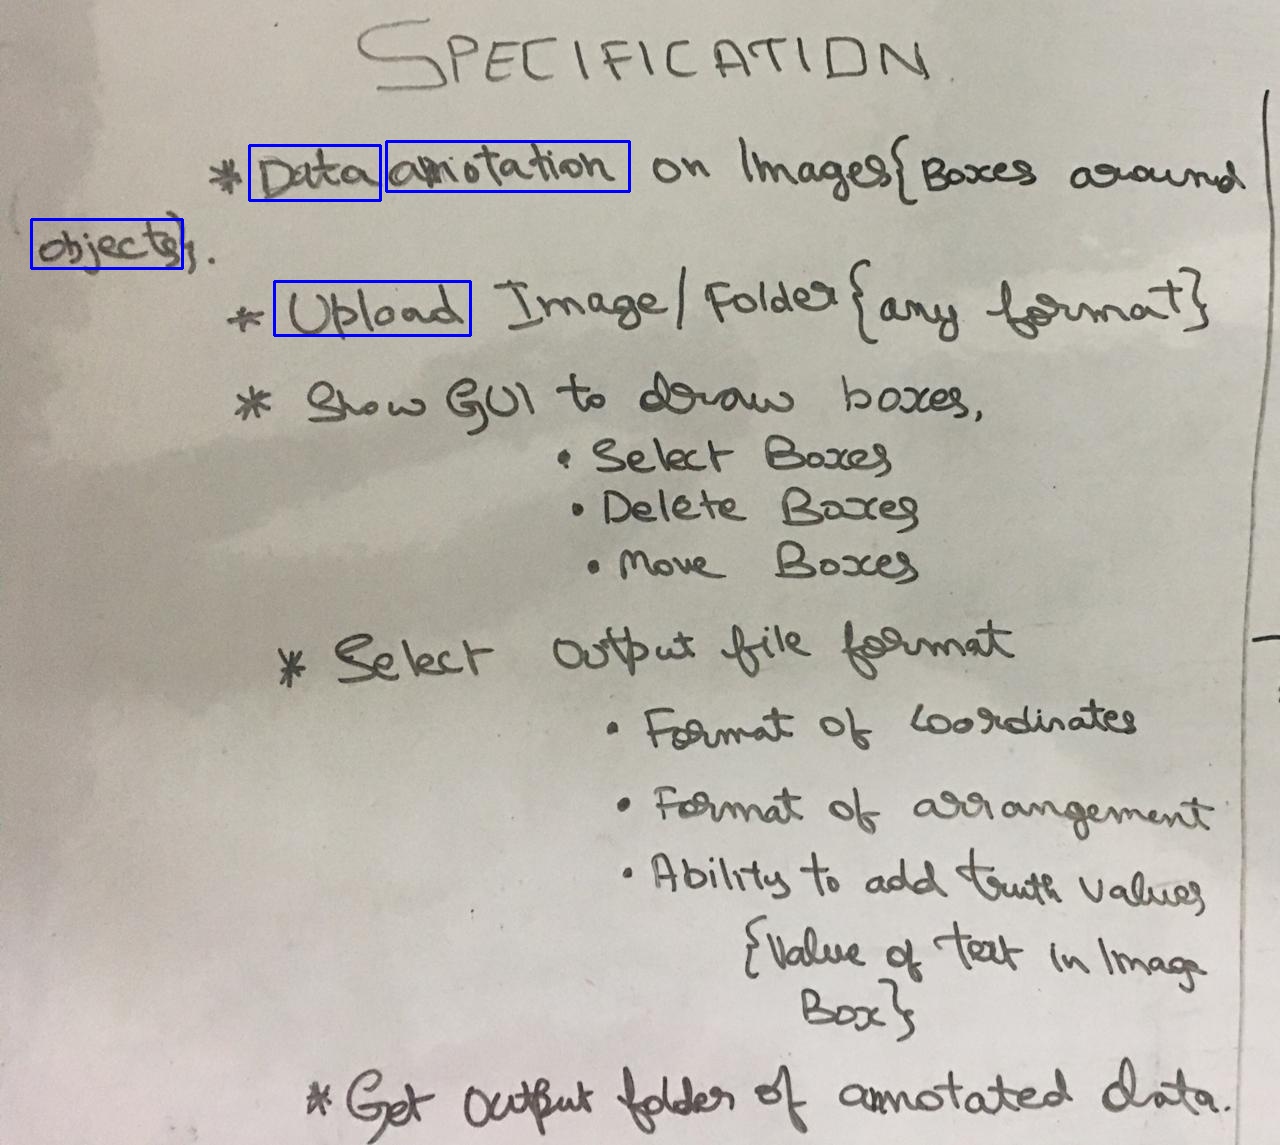 SPECIFICATION
* Data annotation on Images{Boxes around
objects}.
* Upload Image/Folder{any format}
* Show GUI to draw boxes,
• Select Boxes
• Delete Boxes
• Move Boxes
* Select output file format
• Format of coordinates
• Format of arrangement
• Ability to add truth values
{Value of text in Image
Box}
* Get output folder of annotated data.